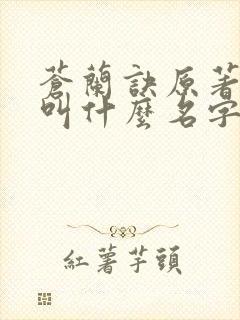 蒼蘭訣原著
叫什麼名字
紅薯芋頭